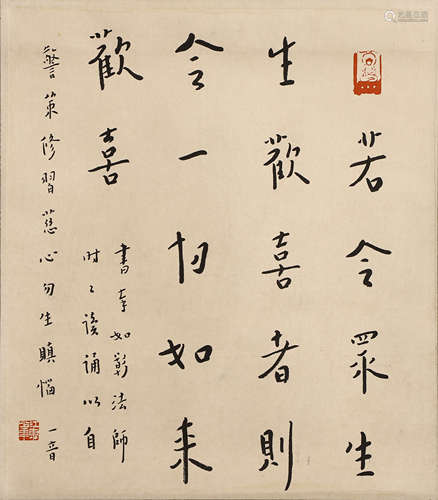 若令眾生
生歡喜者則
令一切如來
歡喜
書奉如影法師
時々讀誦以自
警策修習慈心勿生瞋惱
一音